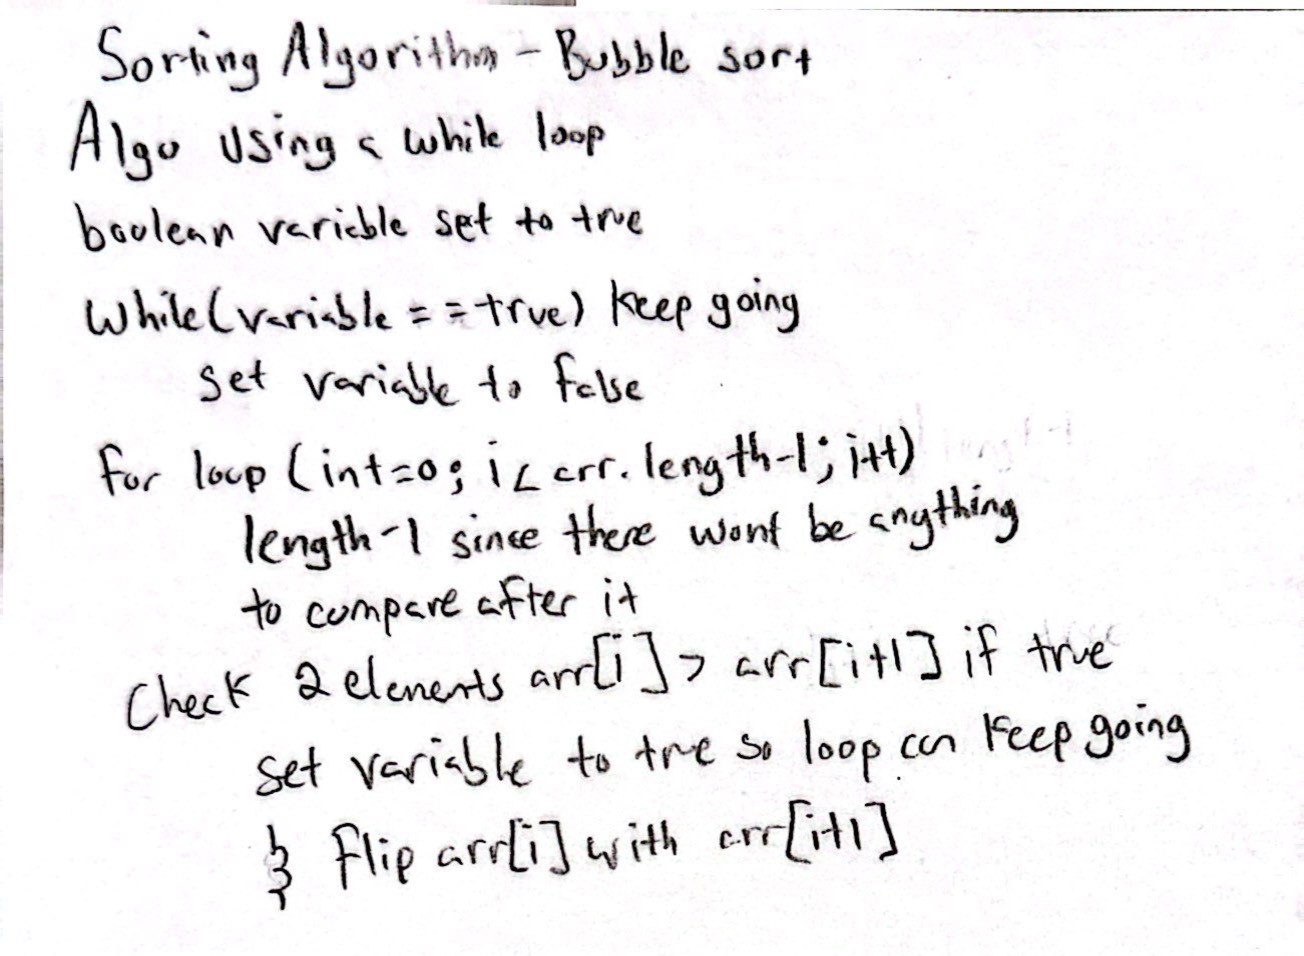 Sorting Algorithm - Bubble sort
Algo using a while loop
boolean variable set to true
While(variable == true) keep going
set variable to false
for loop (int=0; i < arr.length-1; i++)
length-1 since there wont be anything
to compare after it
Check 2 elements arr[i] > arr[i+1] if true
set variable to true so loop can keep going
& flip arr[i] with arr[i+1]